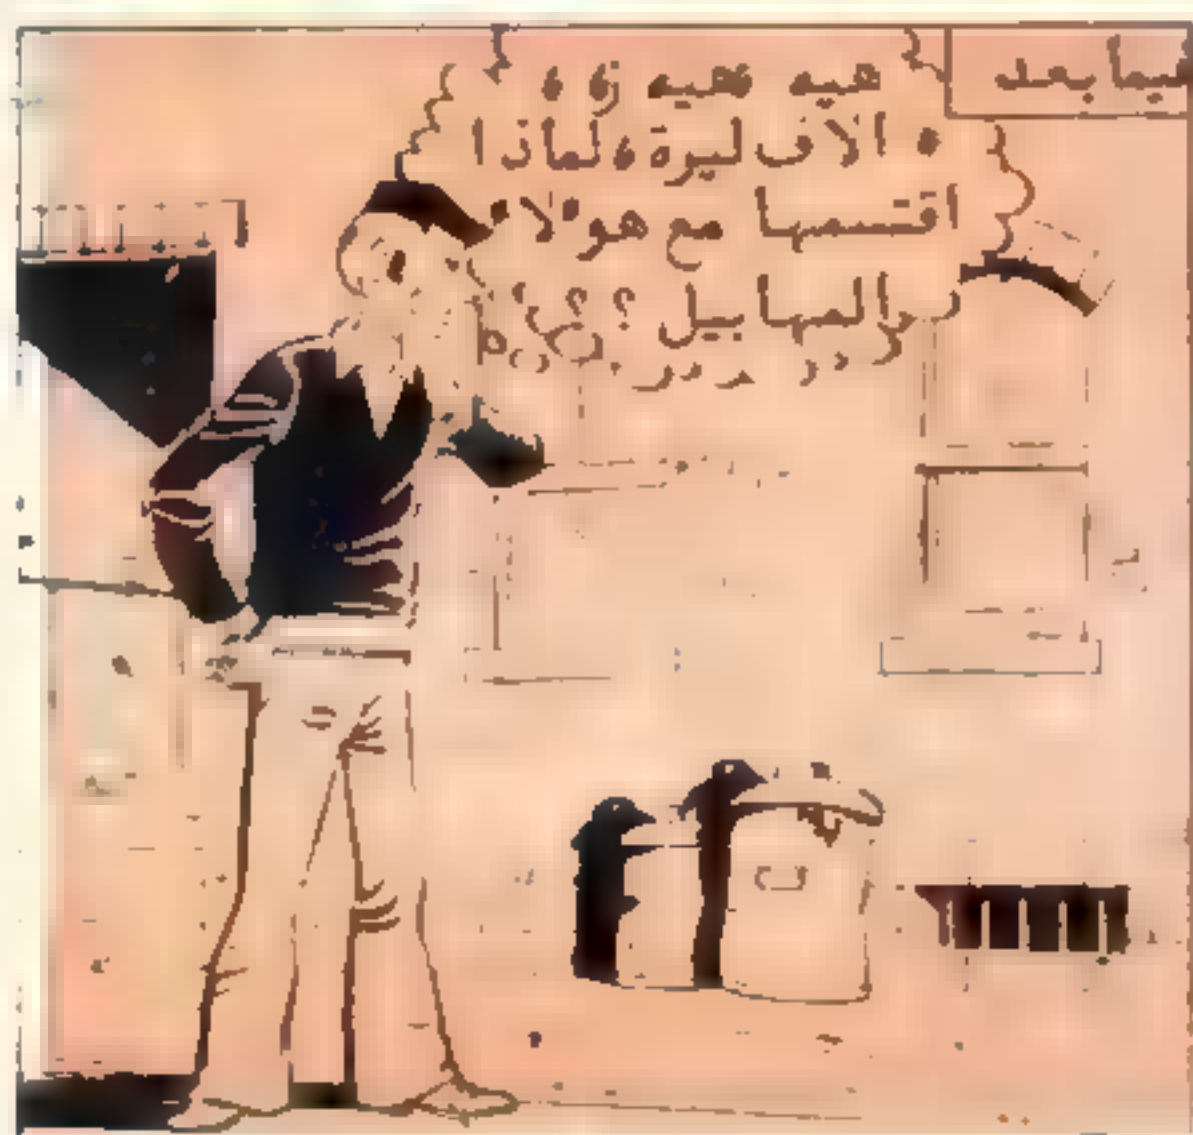 فيما بعد
هيه هيه ,, ٥٥
٥ الاف ليرة ، لماذا
اقتسمها مع هولاء
المهابيل ؟؟؟